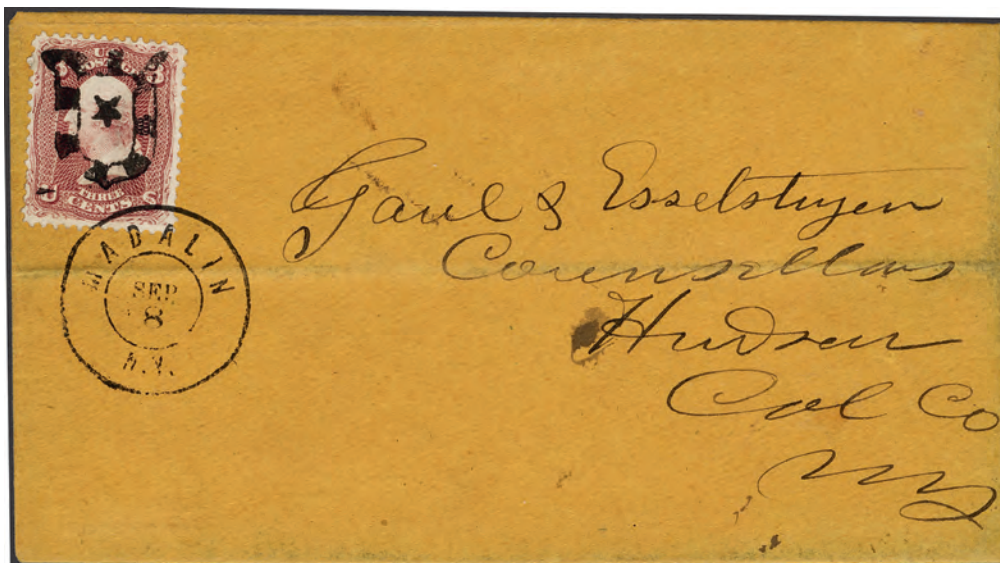 U.S. POSTAGE
3 3
THREE
CENTS
MADALIN
SEP
8
N.Y.
Gaul & Esselstuyen
Counsellors
Hudson
Col Co
NY